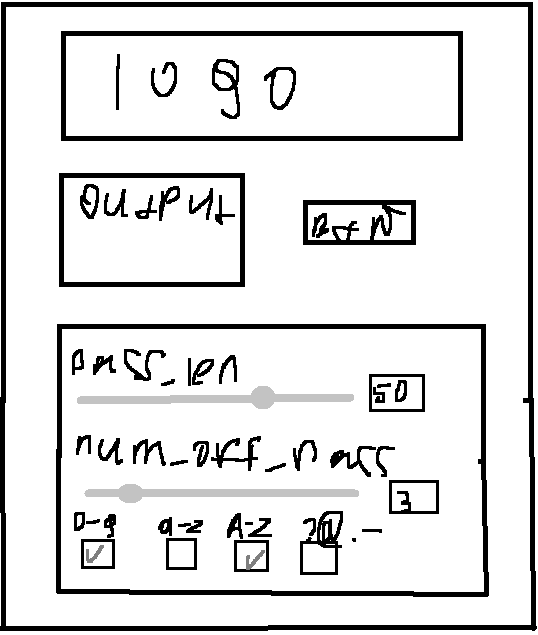 logo
output
BtN
pass_len
50
num_off_pass
3
0-9 a-z A-Z ?@.-